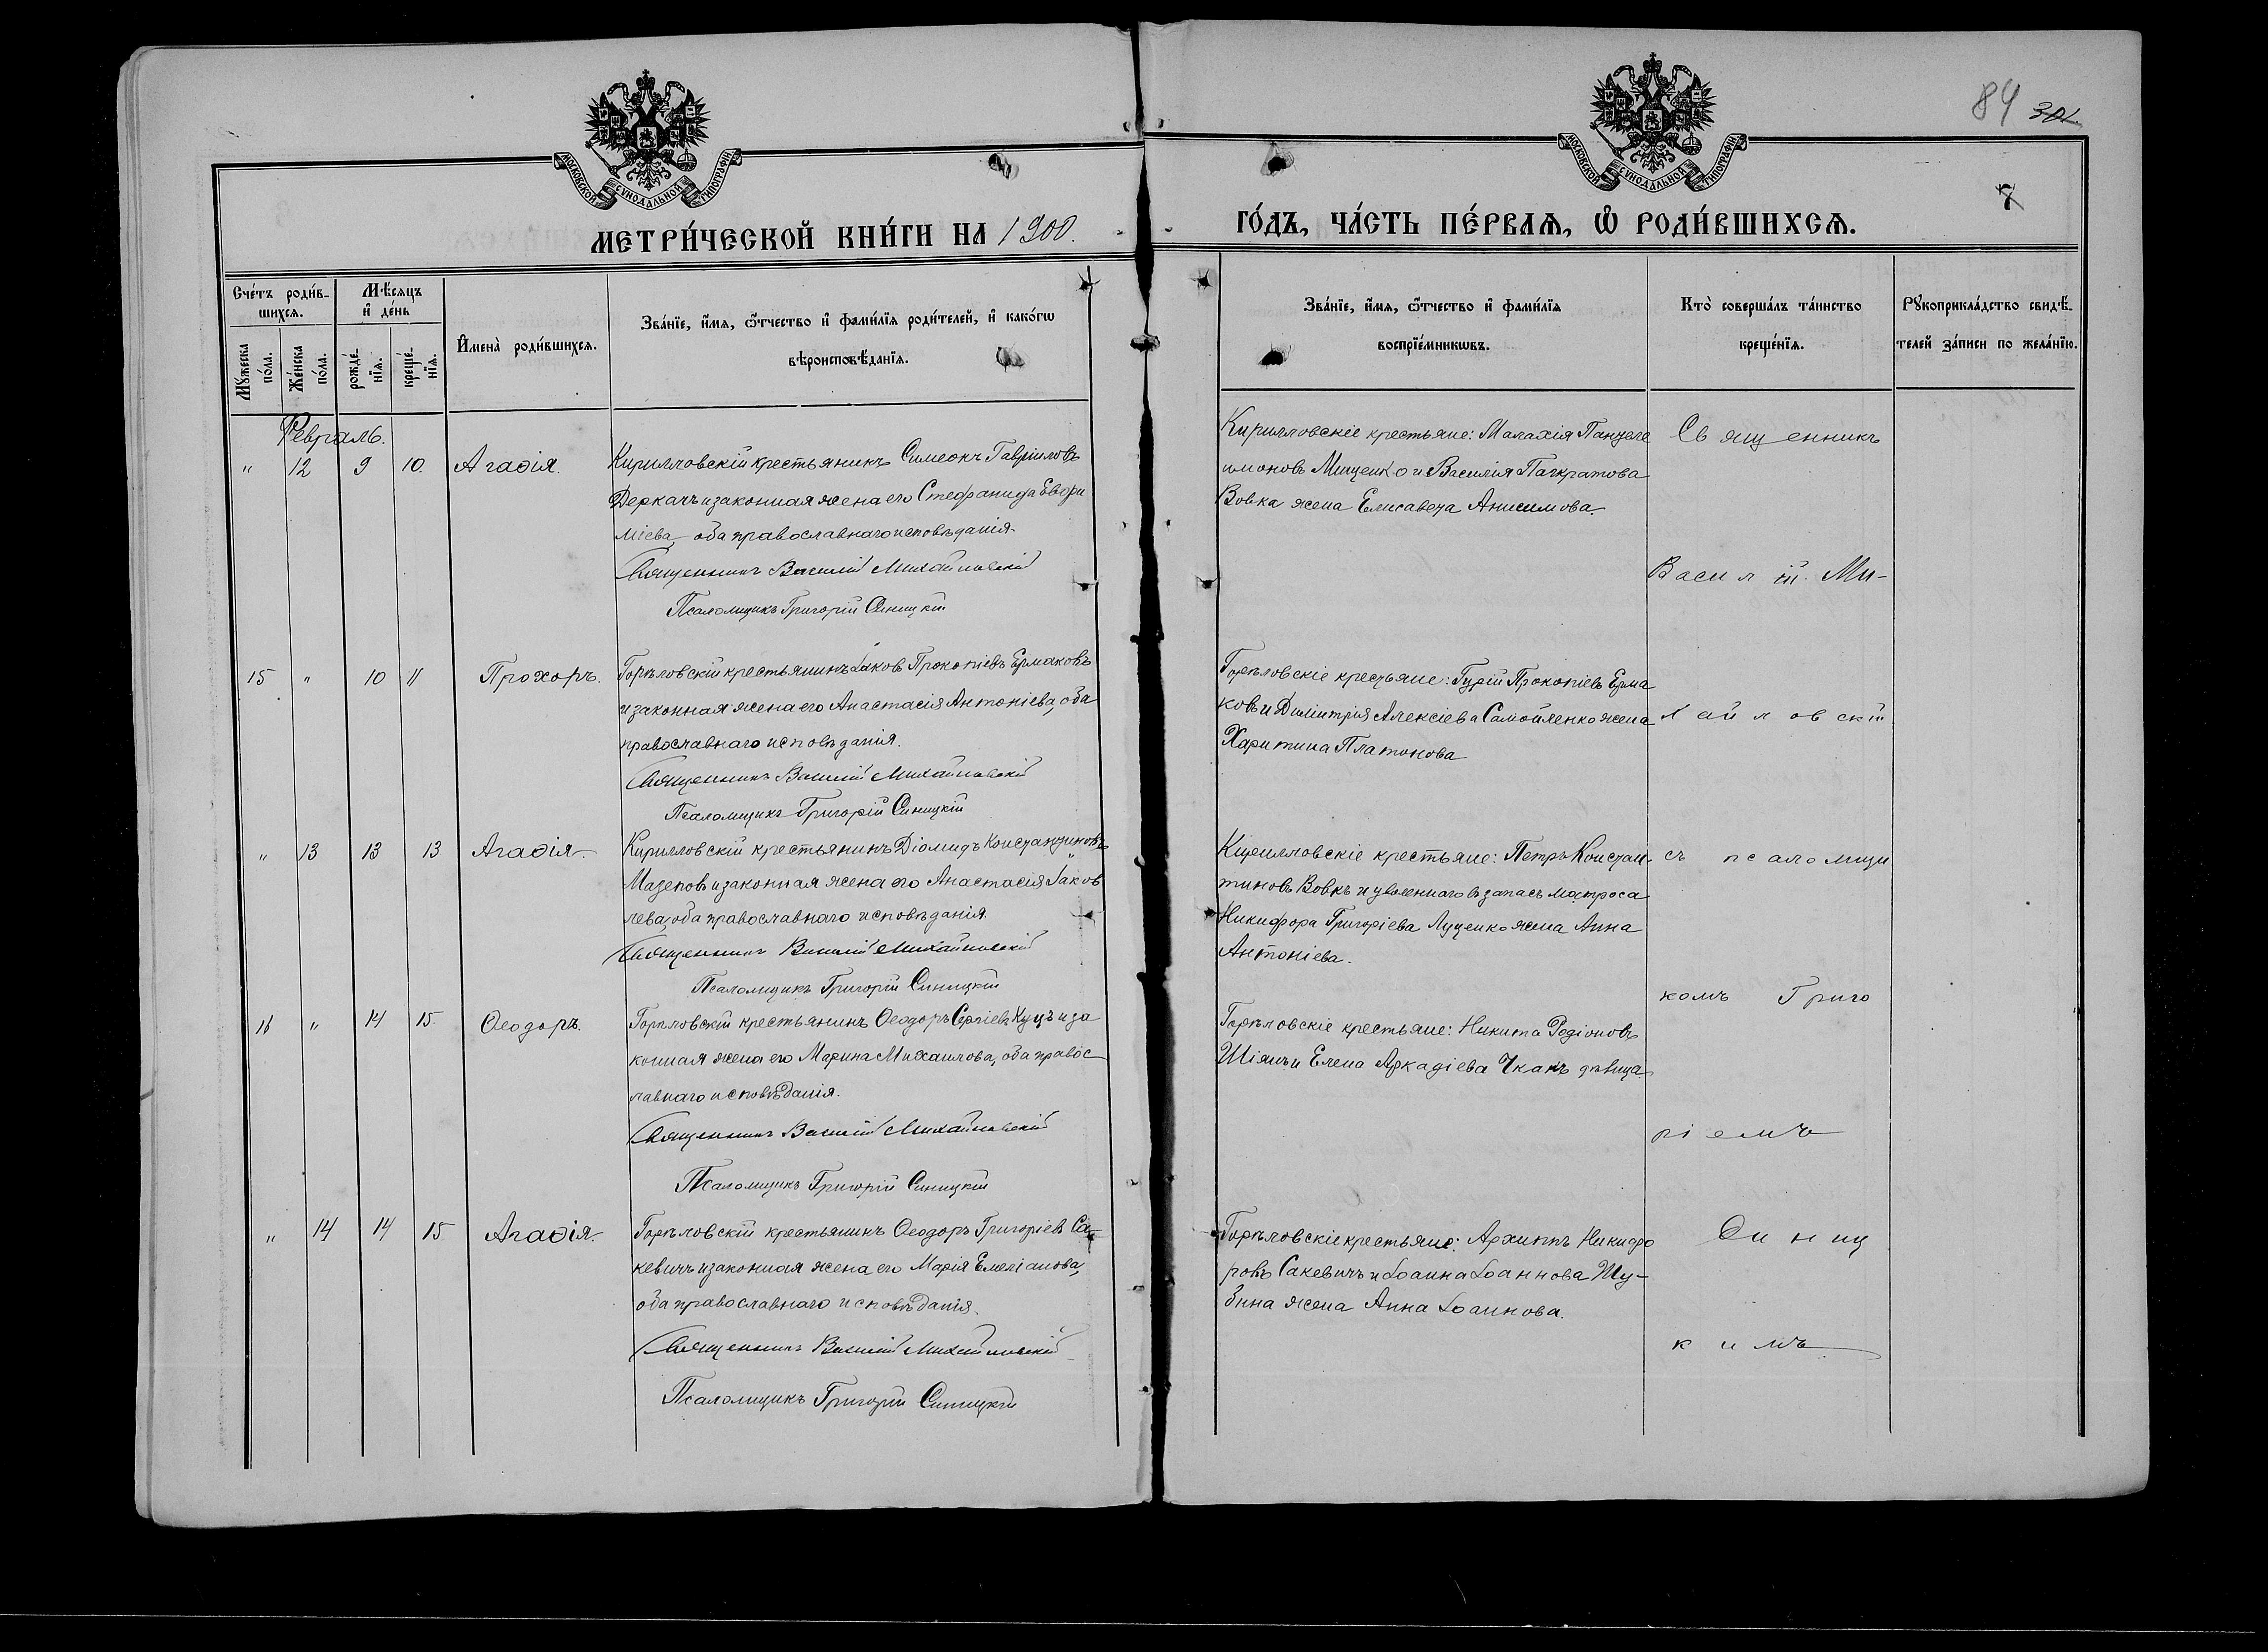 84 301
7
МОСКОВСКОЙ СѴНОДАЛЬНОЙ ТИПОГРАФІИ
МОСКОВСКОЙ СѴНОДАЛЬНОЙ ТИПОГРАФІИ
МЕТРИ́ЧЕСКОЙ КНИ́ГИ НА 1900.
ГО́ДЪ, ЧА́СТЬ ПЕ́РВАѦ, Ѡ҆ РОДИ́ВШИХСѦ.
Сче́тъ роди́в-
шихсѧ.
Мꙋ́жеска
по́ла.
Же́нска
по́ла.
Мѣ́сѧцъ
и҆ де́нь
рожде́-
нїѧ.
креще́-
нїѧ.
И҆мена̀ роди́вшихсѧ.
Зва́нїе, и҆́мѧ, ѻ҆́тчество и҆ фами́лїѧ роди́телей, и҆ како́гѡ
вѣроисповѣ́данїѧ.
Зва́нїе, и҆́мѧ, ѻ҆́тчество и҆ фами́лїѧ
воспрїе́мникѡвъ.
Кто̀ соверша́лъ та́инство
креще́нїѧ.
Рꙋкоприкла́дство свидѣ́-
телей за́писи по жела́нїю.
Февраль.
" 12 9 10. Агаѳія.
Кирилловскій крестьянинъ Симеонъ Гавріиловъ
Деркачъ и законная жена его Стефанида Евфи
міева, оба православнаго исповѣданія.
Священникъ Василій Михайловскій
Псаломщикъ Григорій Синицкій
Кирилловскіе крестьяне: Малахія Пантеле
имоновъ Мищенко и Василія Панкратова
Вовка жена Елисавета Анисимова.
Священникъ
Василій. Ми-
15 " 10 11 Прохоръ.
Горѣловскій крестьянинъ Іаковъ Прокопіевъ Ермаковъ
и законная жена его Анастасія Антоніева, оба
православнаго исповѣданія.
Священникъ Василій Михайловскій
Псаломщикъ Григорій Синицкій
Горѣловскіе крестьяне: Гурій Прокопіевъ Ерма
ковъ и Димитрія Алексіева Самойленко жена
Харитина Платонова
хайловскій
" 13 13 13 Агаѳія.
Кирилловскій крестьянинъ Діомидъ Константиновъ
Мазеповъ и законная жена его Анастасія Іаков
лева, оба православнаго исповѣданія.
Священникъ Василій Михайловскій
Псаломщикъ Григорій Синицкій
Кирилловскіе крестьяне: Петръ Констан-
тиновъ Вовкъ и уволеннаго въ запасъ матроса
Никифора Григоріева Луценко жена Анна
Антоніева.
съ псаломщи
комъ Григо
16 " 14 15. Ѳеодоръ.
Горѣловскій крестьянинъ Ѳеодоръ Сергіевъ Куцъ и за
конная жена его Марина Михаилова, оба правос
лавнаго исповѣданія.
Священникъ Василій Михайловскій
Псаломщикъ Григорій Синицкій
Горѣловскіе крестьяне: Никита Родіоновъ
Шіянъ и Елена Аркадіева Чканъ дѣвица.
ріемъ
" 14 14 15 Агаѳія.
Горѣловскій крестьянинъ Ѳеодоръ Григоріевъ Са-
кевичъ и законная жена его Марія Емеліанова,
оба православнаго исповѣданія.
Священникъ Василій Михайловскій
Псаломщикъ Григорій Синицкій
Горѣловскіе крестьяне: Архиппъ Никифо
ровъ Сакевичъ и Іоанна Іоаннова Шу-
бина жена Анна Іоаннова.
Синиц
кимъ